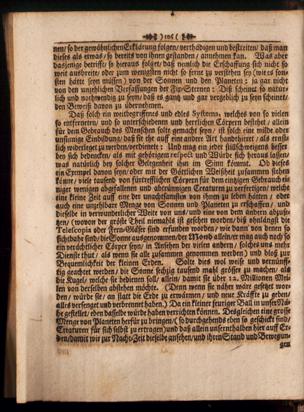 106
nen/ so der gewöhnlichen Erklärung folgen/ verthädigen und bestreiten/ daß man
dieses als etwas/ so bereits von ihnen gestanden/ annehmen kan. Was aber
dasjenige betrifft/ so hieraus folget/ daß nemlich die Erschaffung sich nicht so
weit ausbreite/ oder zum wenigsten nicht so fern zu verstehen sey (wie es sonsten
hätte seyn müssen) von der Sonnen und den Planeten: ja gar nicht
von den unzehlichen Verfassungen der Fix-Sternen: Diß scheinet so natürlich
und nothwendig zu seyn/ daß es gantz und gar vergeblich zu seyn scheinet/
den Beweiß davon zu übernehmen.
Daß solch ein weitbegreiffenes und edles Systema, welches von so vielen
so entferneten/ und so unterschiedenen und herrlichen Cörpern bestehet/ allein
für den Gebrauch des Menschen solte gemacht seyn/ ist solch eine wilde und
unsinnige Einbildung/ daß sie ehe auf eine andere Art
sich widerleget zu werden/ verdienete: Und mag ein jeder
den sich bedencken/ als mit gehörigem respect und Würde sich heraus lassen/
was natürlich bey solcher Gelegenheit ihm in Sinn kömmt. Ob dieses
ein Exempel davon seye/ oder mit der Göttlichen Weißheit zusammen stehen
könne/ viele tausend von fürtrefflichen Cörpern für den einigen Gebrauch einiger
wenigen abgefallenen und abtrünnigen Creaturen zu verfertigen/ welche
eine kleine Zeit auf eine der unachtsamsten von ihnen zu leben hätten/ oder
auch eine unzehlbare Menge von Sonnen und Planeten zu erschaffen/ und
dieselbe in verwunderlicher Weite von uns/ und eine von dem andern abzusondern/
(wovon der gröste Theil niemahls ist gesehen worden/ biß ohnlängst die
Telescopia oder Fern-Gläser sind erfunden worden/ wie dann von denen so
sichtbahr sind/ die Sonne ausgenommen/ der Mond allein/ er mag auch noch so
ein verächtlicher Cörper seyn/ in Ansehen der vielen andern/ solches uns mehr
Dienste thut/ als wenn sie alle zusammen genommen werden) und bloß zur
Bequemlichkeit der kleinen Erden. Solte dieß vor weise und vernünfftig
geachtet werden/ die Sonne sechzig tausend mahl grösser zu machen/ als
die Kugel/ welche sie bedienen soll/ allein/ damit sie über 12. Millionen Meilen
von derselben abstehen möchte. (Denn wenn sie näher wäre gesetzet worden/
würde sie/ an statt die Erde zu erwärmen/ und neue Kräffte zu geben/
alles versenget und verbrennet haben.) Da ein kleiner feuriger Ball in unserer Nähe
gestellet/ eben dasselbe würde haben verrichten können. Desgleichen eine grosse
Menge von Planeten herfür zu bringen/ (so durchgehends eben so geschickt sind/
Creaturen für sich selbst zu ertragen) und daß allein unsenthalben hier auf Erden/
damit wir zur Nacht-Zeit dieselbe ansehen/ und ihrem Stand und Bewegungen